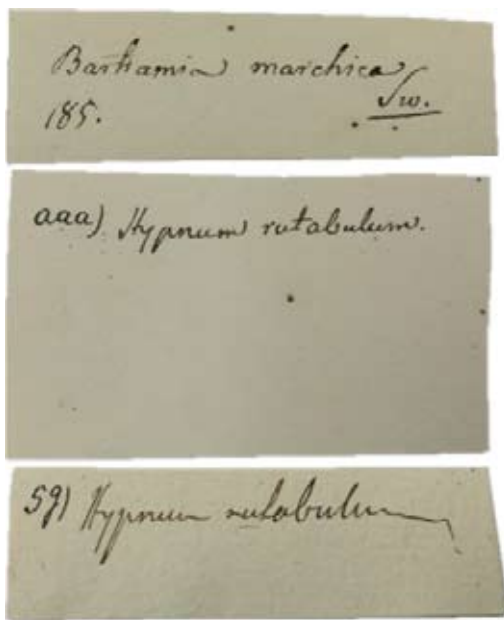 Bartramia marchica
Sw.
185.
aaa) Hypnum rutabulum.
59) Hypnum rutabulum